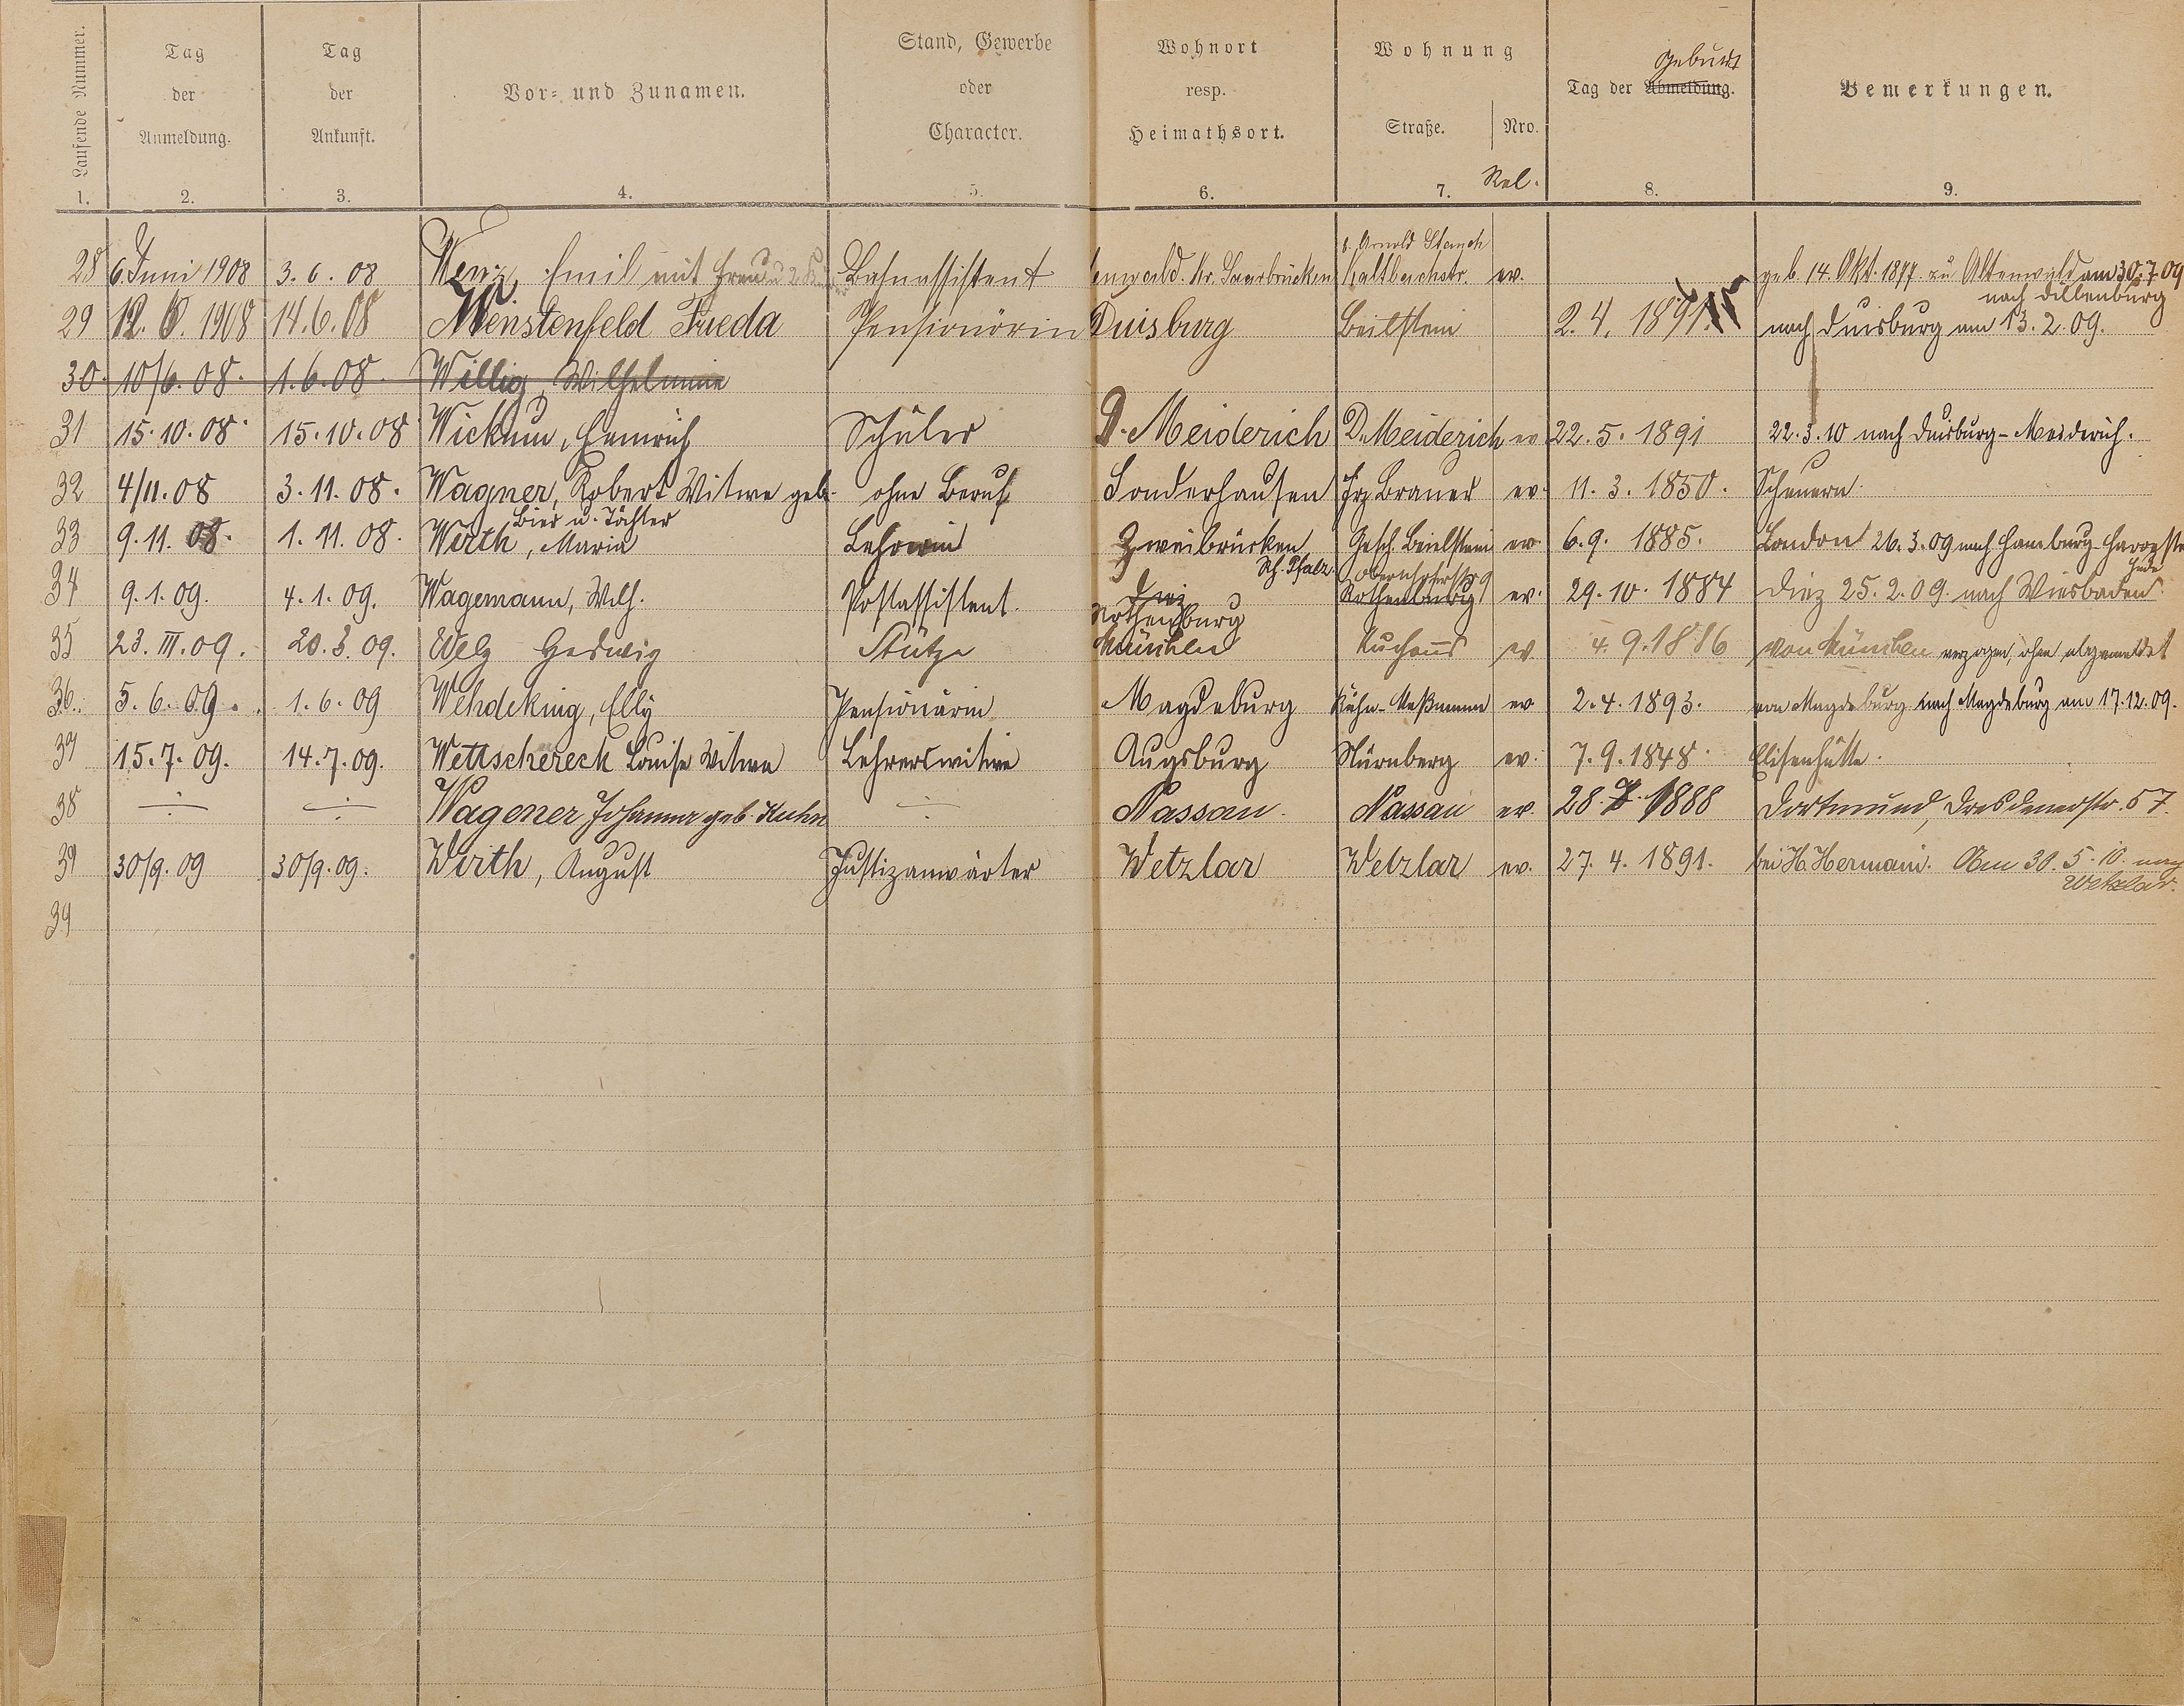 Laufende Nummer. Tag der Anmeldung. Tag der Ankunft. Vor- und Zunamen. Stand, Gewerbe oder Character. Wohnort resp. Heimathsort. Wohnung Straße. Nro. Rel. Tag der Abmeldung. Geburt Bemerkungen.
1. 2. 3. 4. 5. 6. 7. 8. 9.
28 6. Juni 1908 3. 6. 08 Wenz, Emil mit Frau u 2 Kinder Bahnassistent enwald. Kr. Saarbrücken b. Arnold Kaltbachstr. ev. geb. 14. Okt. 1877 zu Altenwald am 30.7.09
nach Dillenburg
29 12. 6. 1908 14. 6. 08 Menstenfeld Frieda Pensionärin Duisburg Beilstein 2. 4. 1891 nach Duisburg am 13. 2. 09.
30. 10/6. 08. 1. 6. 08. Willig, Wilhelmine
31 15. 10. 08. 15. 10. 08 Wickum, Heinrich Schüler D. Meiderich D. Meiderich ev 22. 5. 1891 22. 3. 10 nach Duisburg-Meiderich.
32 4/11. 08 3. 11. 08. Wagner, Robert Witwe geb. ohne Beruf Sonderhausen Frz Brauer ev. 11. 3. 1850. Scheuern.
Bier u. Töchter
33 9. 11. 08. 1. 11. 08. Wirth, Maria Lehrerin Zweibrücken Gesch. Beilstein ev. 6. 9. 1885. London 26. 3. 09 nach Hamburg
Rh. Pfalz.
34 9. 1. 09. 4. 1. 09. Wagemann, Wilh. Postassistent. Diez Rothenburg ev. 29. 10. 1884 Diez 25. 2. 09. nach Wiesbaden.
Rothenburg
35 23. III. 09. 20. 3. 09. Welz Hedwig Stütze München Kurhaus ev 4. 9. 1886 von München verzogen, ohne abgemeldet
36. 5. 6. 09. 1. 6. 09 Wehdeking, Elly Pensionärin Magdeburg ev 2. 4. 1893. von Magdeburg nach Magdeburg am 17. 12. 09.
37 15. 7. 09. 14. 7. 09. Wettschereck Louise Witwe Lehrerswitwe Augsburg Nürnberg ev. 7. 9. 1848. Elisenhütte.
38 Wagener Johanna geb. Kuhn Nassau. Nassau ev. 28. 7. 1888 Dortmund, Dresdenerstr. 57.
39 30/9. 09 30/9. 09. Wirth, August Justizanwärter Wetzlar Wetzlar ev. 27. 4. 1891. bei H. Hermani. Am 30. 5. 10. nach
Wetzlar.
39